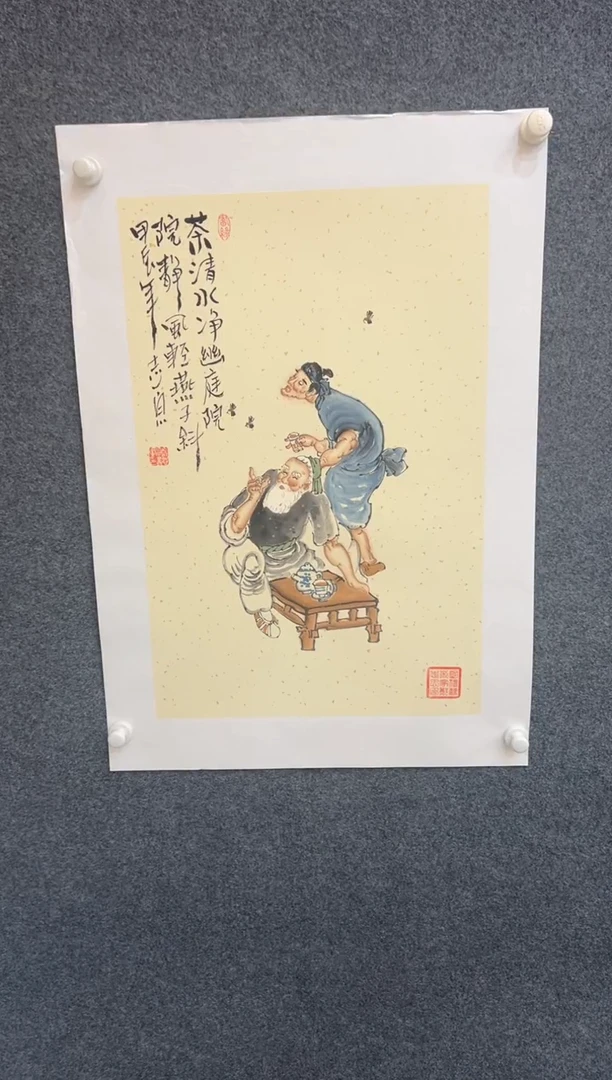 茶清水净幽庭院
院静風輕燕子斜
甲辰年 志